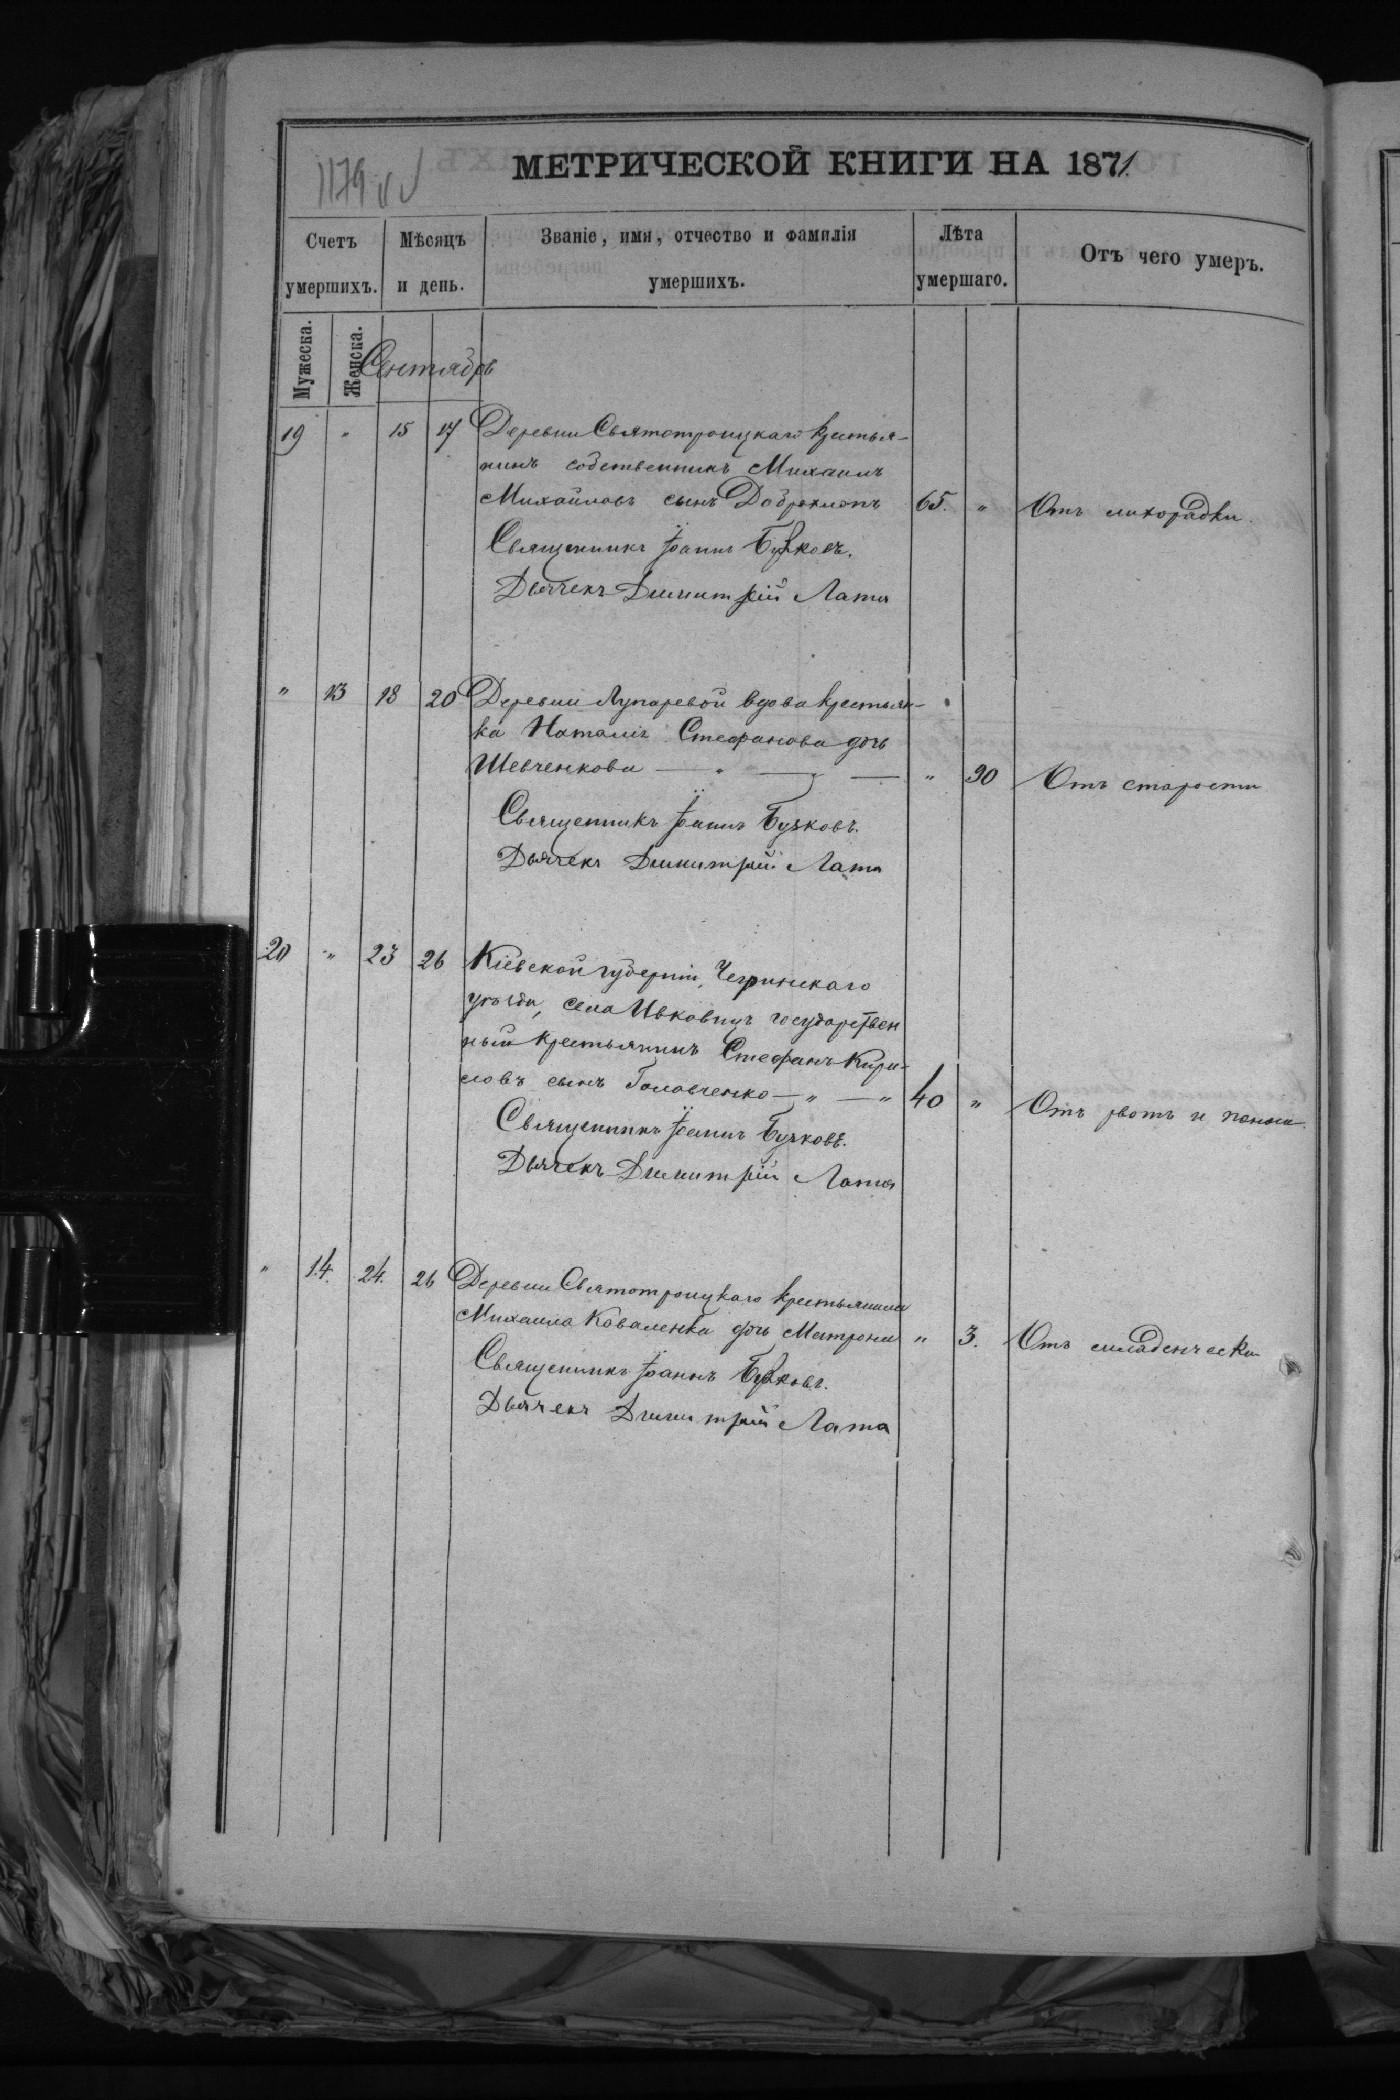 1179 об
МЕТРИЧЕСКОЙ КНИГИ НА 1871
Счетъ умершихъ.
Мѣсяцъ и день.
Званіе, имя, отчество и фамилія умершихъ.
Лѣта умершаго.
Отъ чего умеръ.
Мужеска.
Женска.
Сентябрь
19 " 15 17 Деревни Святотроицкаго крестья-
нинъ собственникъ Михаилъ
Михайловъ сынъ 65. " Отъ лихорадки.
Священникъ Іоаннъ Бучковъ.
Дьячекъ Димитрій Лата
" 13 18 20 Деревни Лупаревой вдова крестьян-
ка Наталія Стефанова дочь
Шевченкова — " — " 90 Отъ старости
Священникъ Іоаннъ Бучковъ.
Дьячекъ Димитрій Лата
20 " 23 26 Кіевской губерніи, Чегринскаго
уѣзда, села Ивковецъ государствен
ный крестьянинъ Стефанъ Кири-
ловъ сынъ Головченко — " — " 40 " Отъ рвотъ и поноса.
Священникъ Іоаннъ Бучковъ.
Дьячекъ Димитрій Лата
" 14. 24. 26 Деревни Святотроицкаго крестьянина
Михаила Коваленка дочь Матрона " 3. Отъ младенческа
Священникъ Іоаннъ Бучковъ.
Дьячекъ Димитрій Лата